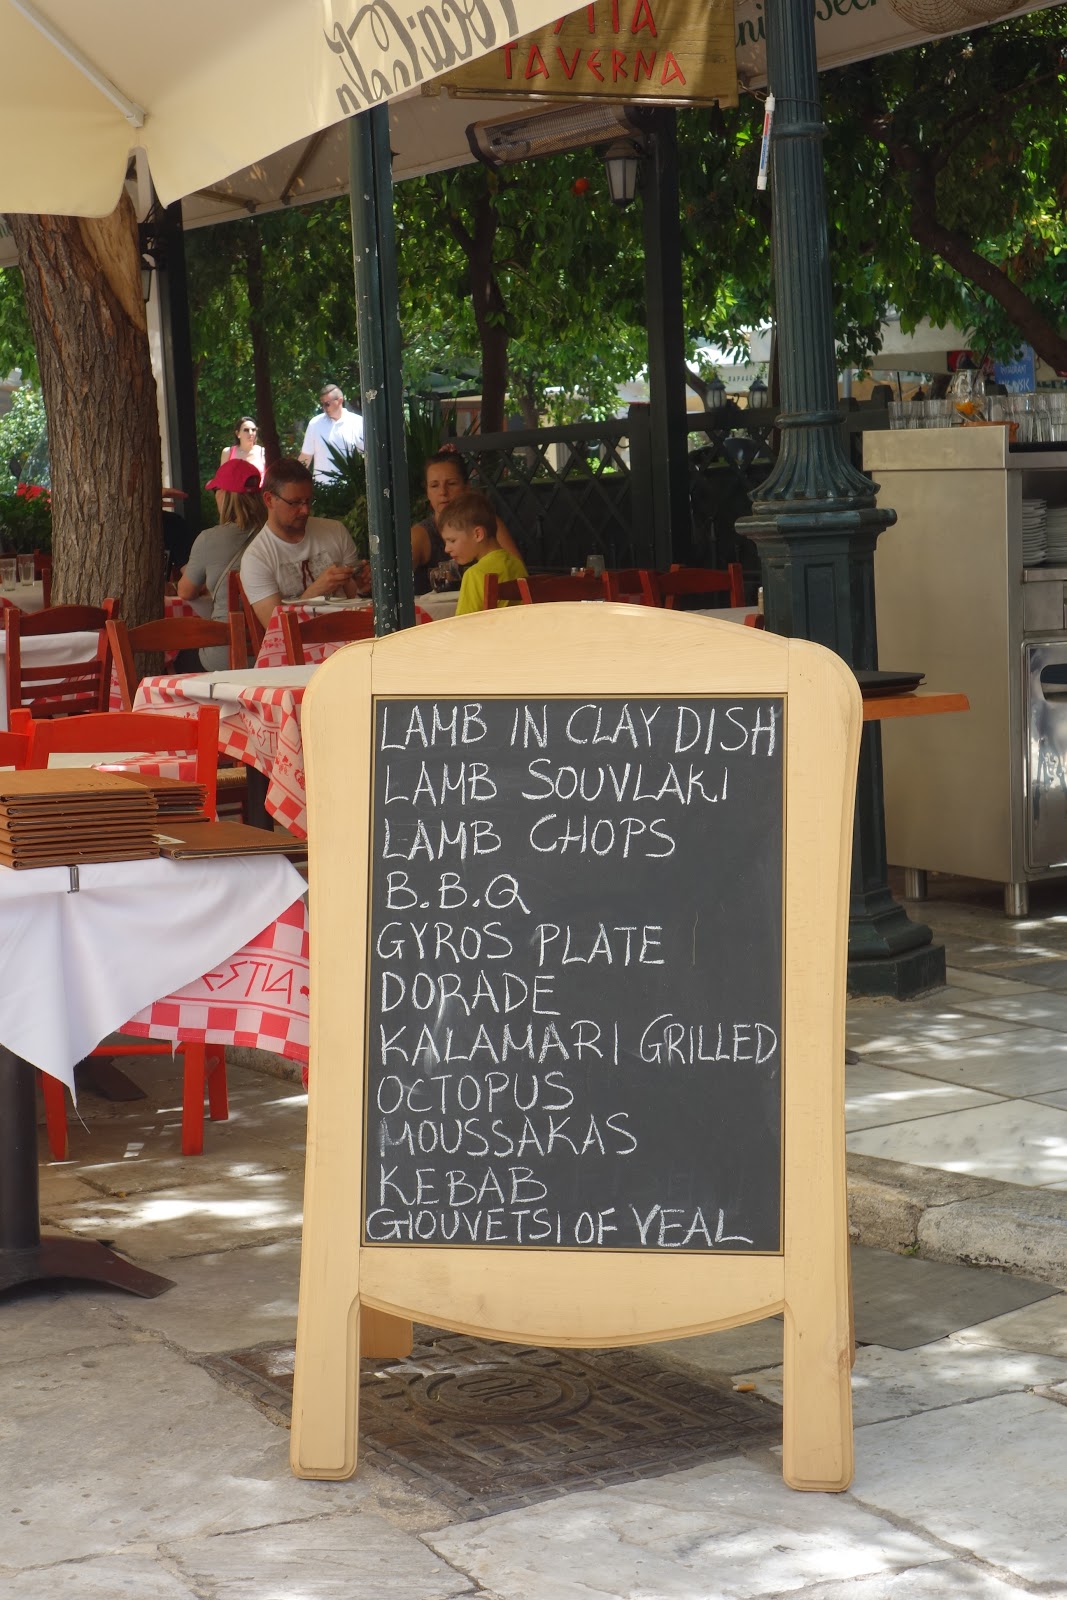 TAVERNA
LAMB IN CLAY DISH
LAMB SOUVLAKI
LAMB CHOPS
B.B.Q
GYROS PLATE
DORADE
KALAMARI GRILLED
OCTOPUS
MOUSSAKAS
KEBAB
GIOUVETSI OF VEAL
ESTIA